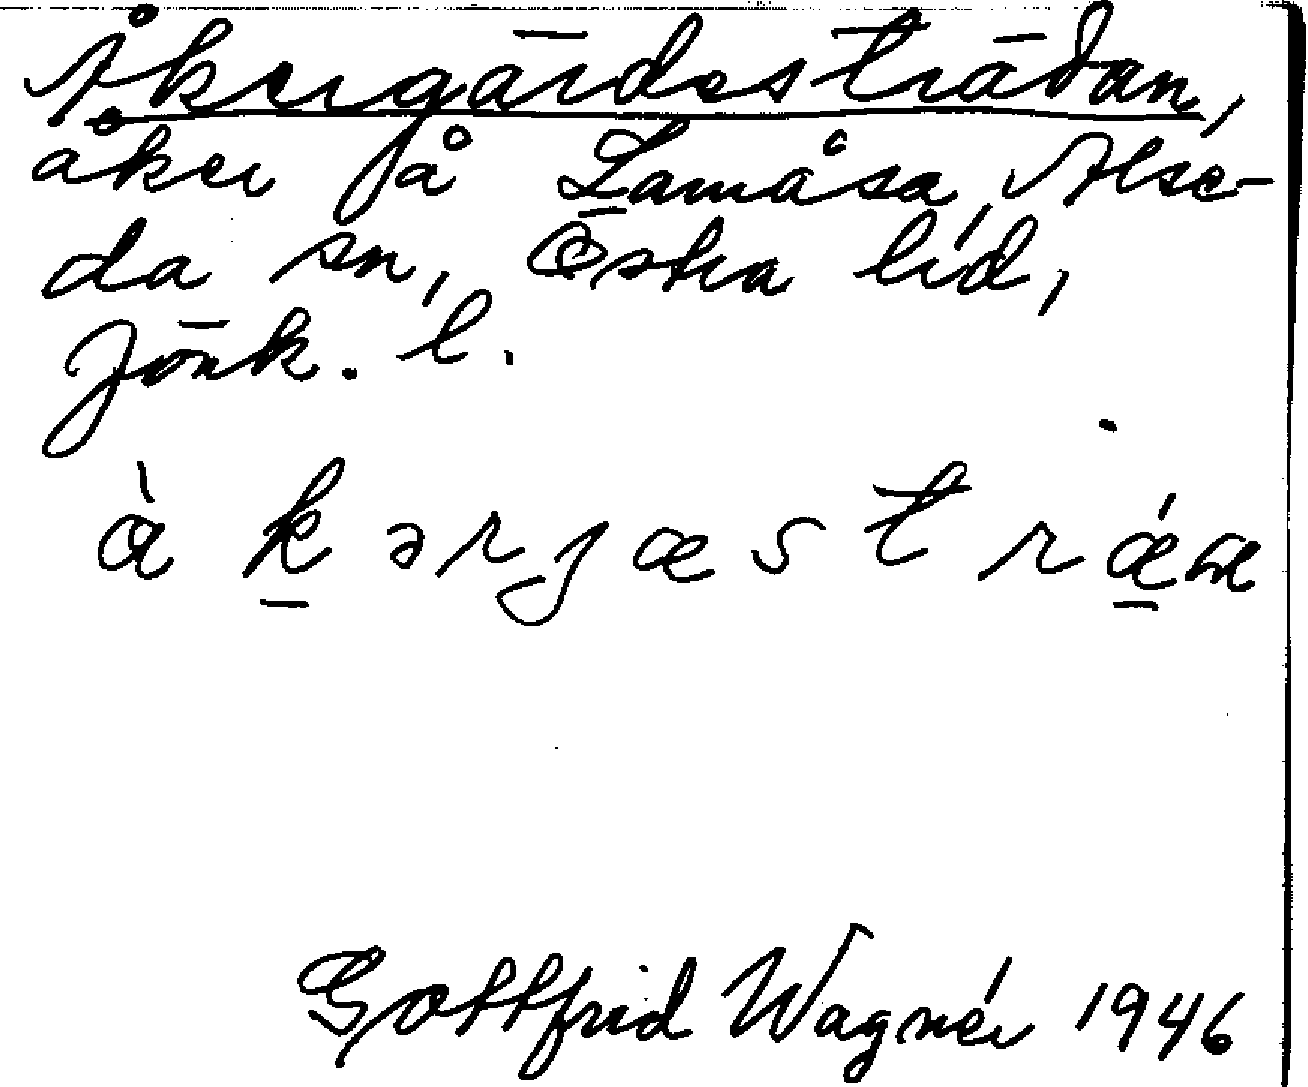 Åkergärdesträdan,
åker på Lamåsa, Alse-
da sn, Östra hd,
Jönk. l.
Gottfrid Wagnér 1946